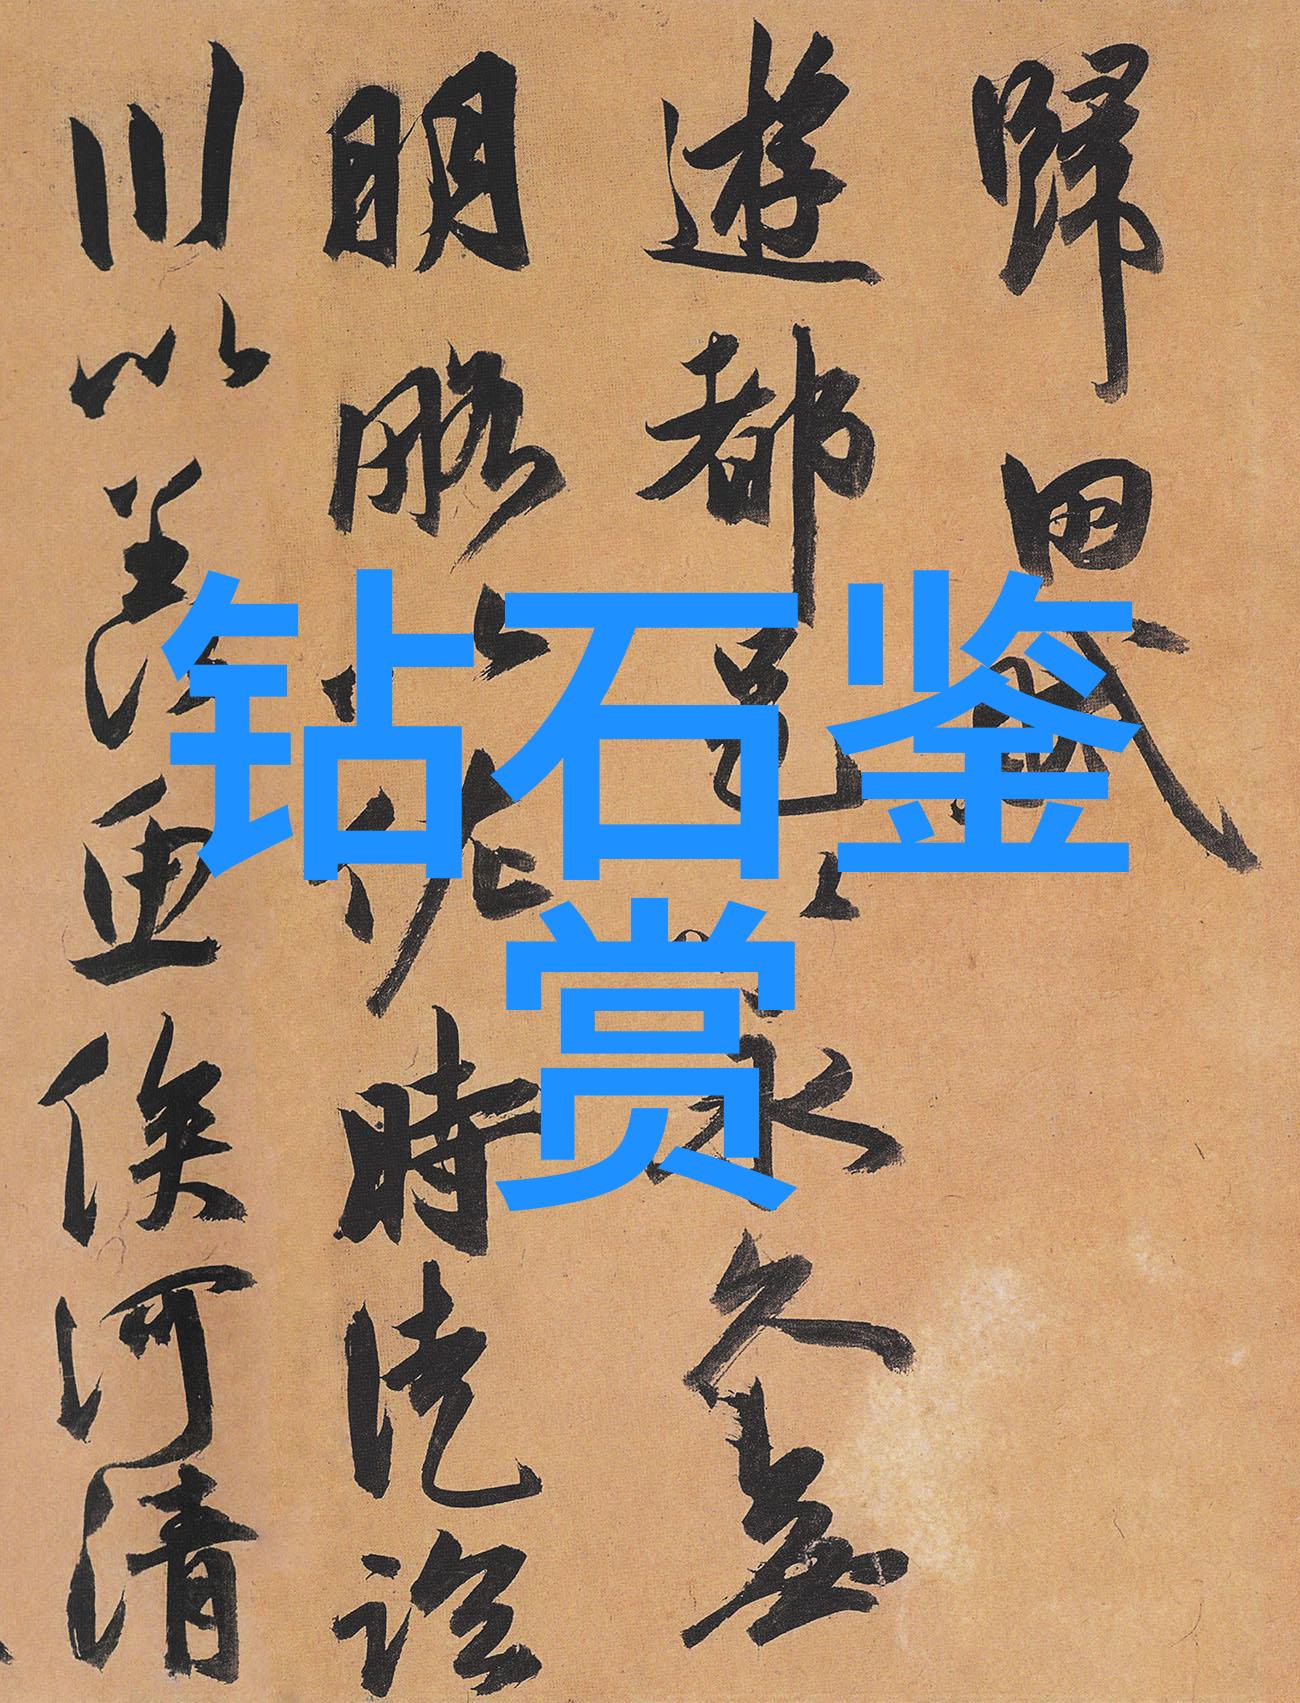 钻石鉴
赏
歸田賦
遊都邑以永久無
明略以佐時徒臨
川以羨魚俟河清